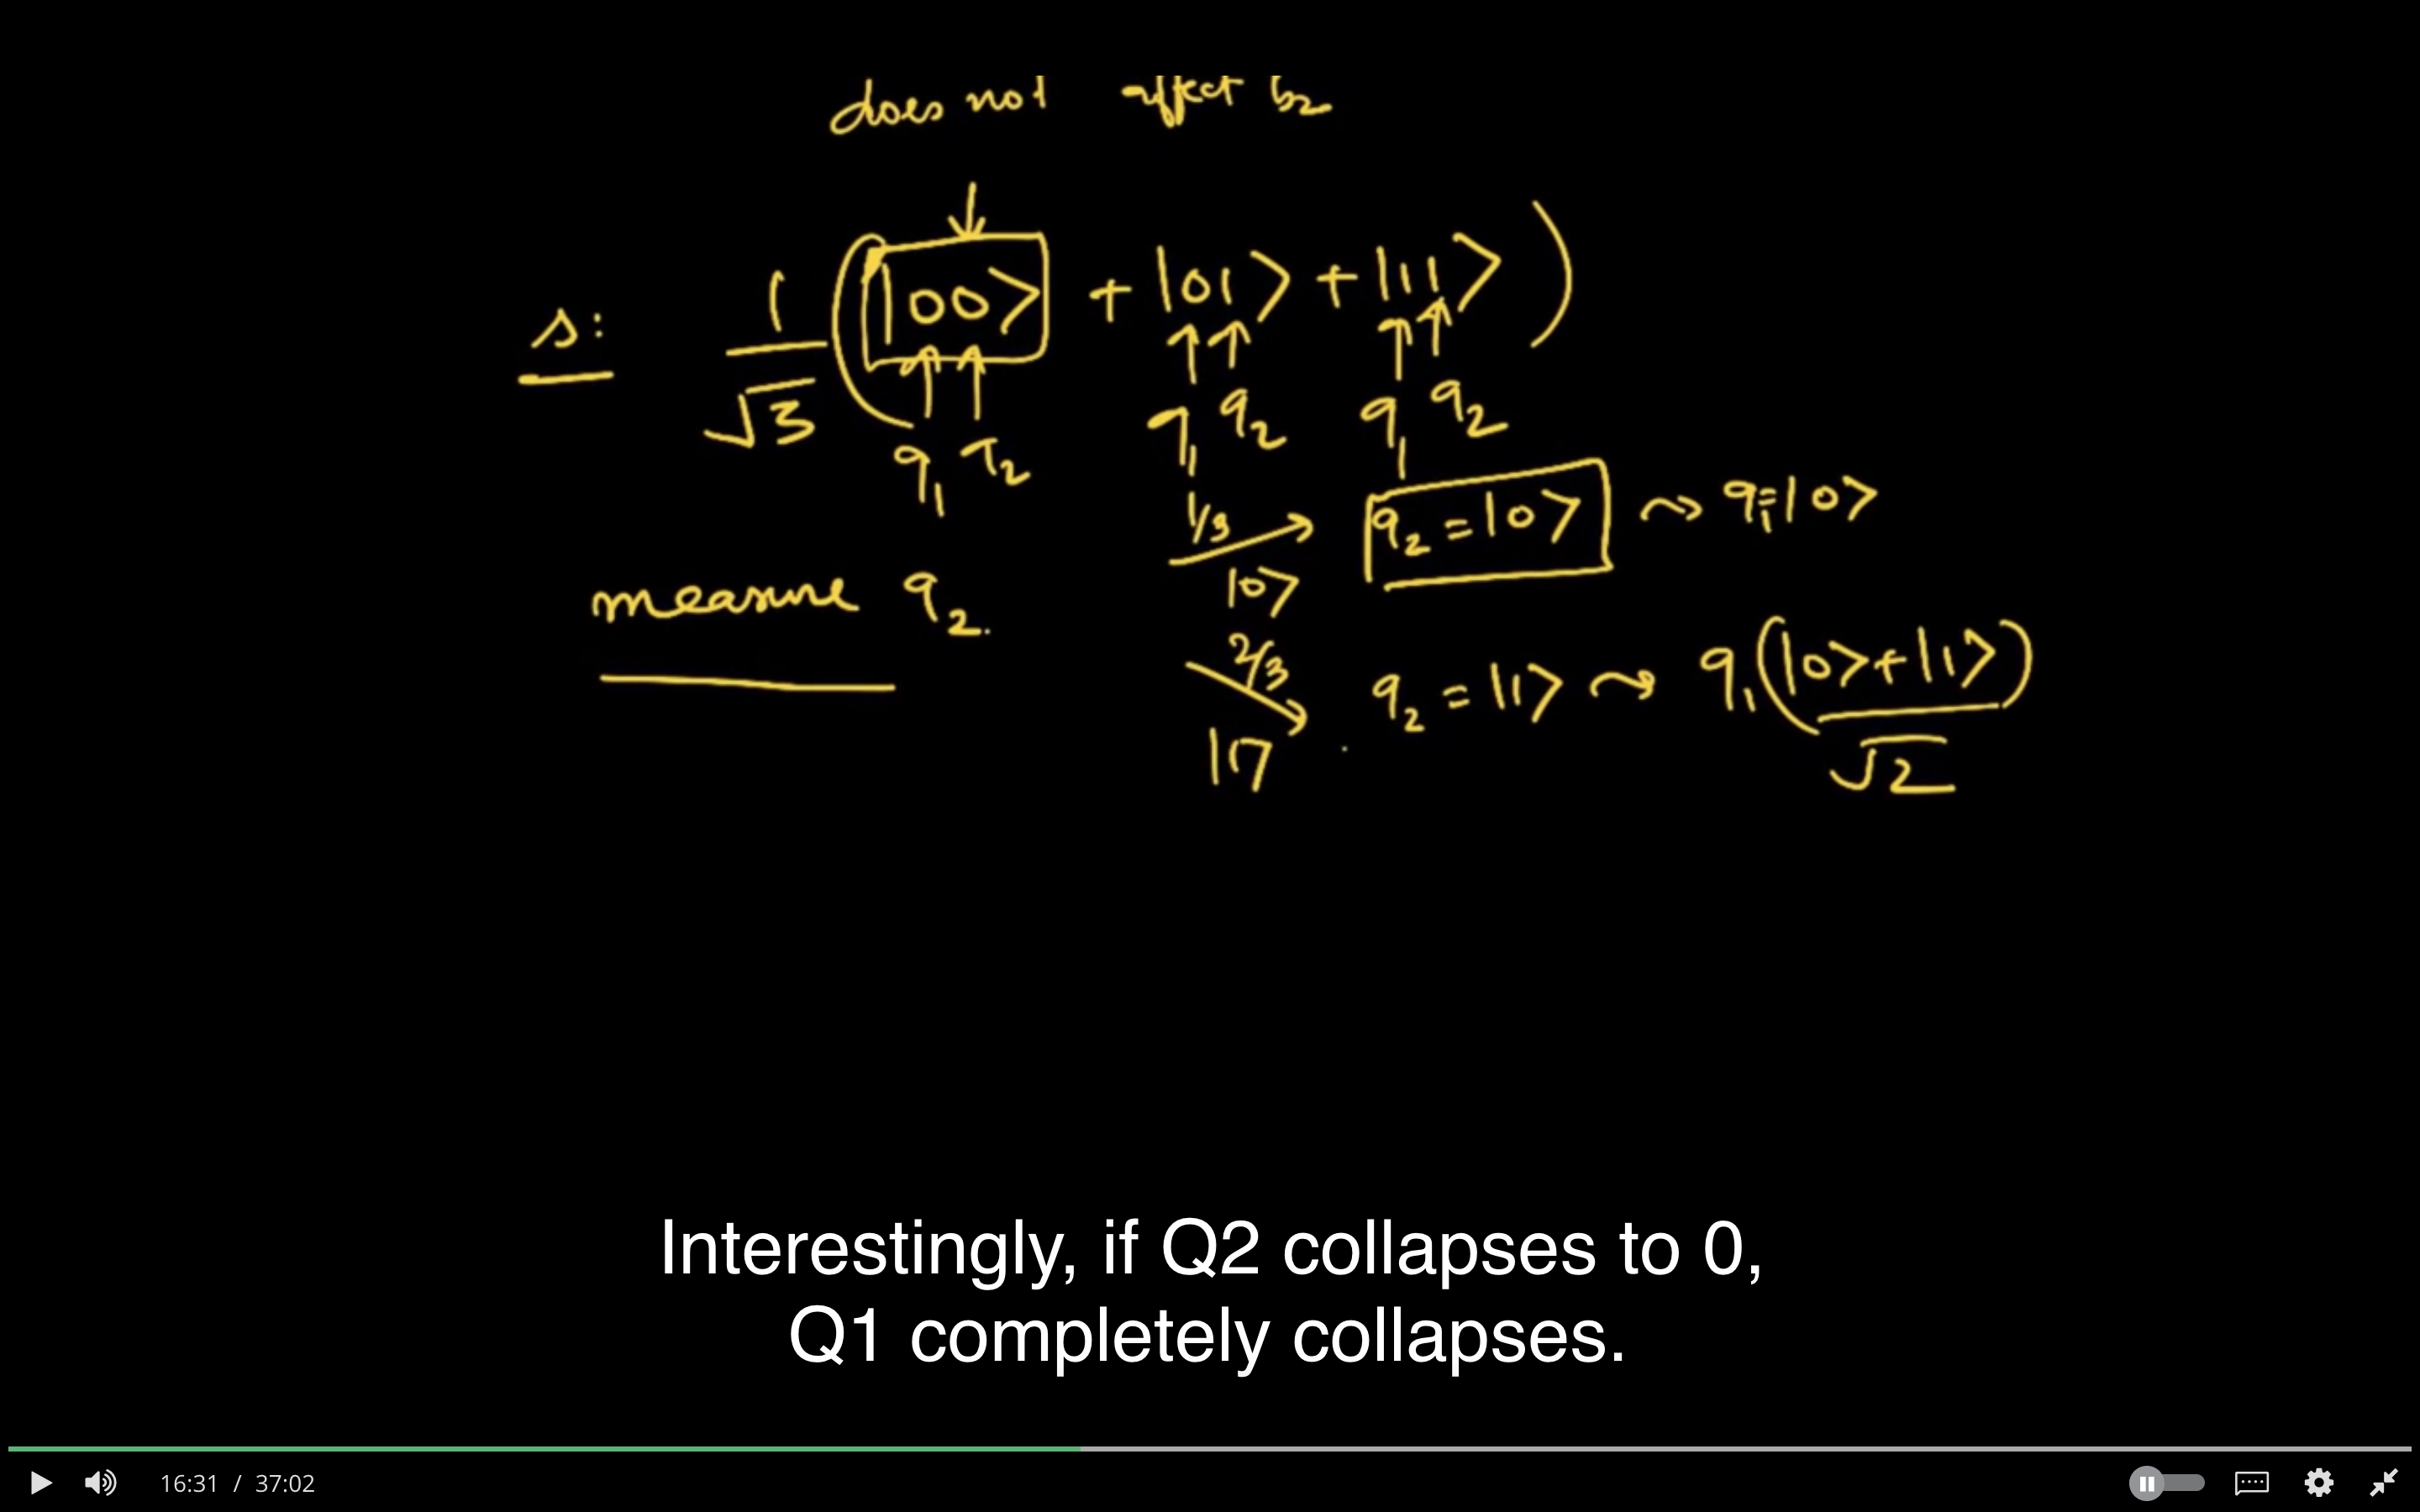 does not affect b₂
s: 1/√3 (|00⟩ + |01⟩ + |11⟩)
q₁ q₂ q₁ q₂ q₁ q₂
1/3 |0⟩ q₂ = |0⟩ ⤳ q₁ = |0⟩
measure q₂.
2/3 |1⟩ q₂ = |1⟩ ⤳ q₁ (|0⟩ + |1⟩)/√2
Interestingly, if Q2 collapses to 0,
Q1 completely collapses.
16:31 / 37:02